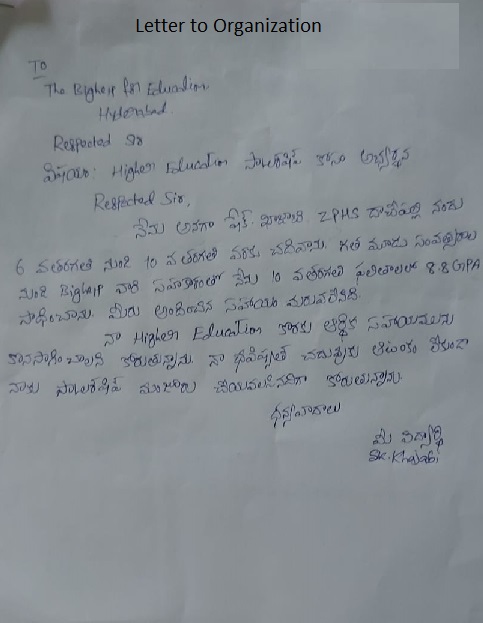 Letter to Organization
To
The Bighelp for Education
Hyderabad.
Respected Sir
విషయం: Higher Education స్కాలర్‌షిప్ కోసం అభ్యర్థన
Respected Sir,
నేను అనగా షేక్ ఖాజాబి ZPHS దాచేపల్లి నందు
6 వతరగతి నుండి 10 వ తరగతి వరకు చదివాను. గత మూడు సంవత్సరాల
నుండి Bighelp వారి సహకారంతో నేను 10 వతరగతి ఫలితాలలో 8.8 GPA
సాధించాను. మీరు అందించిన సహాయం మరువలేనిది.
నా Higher Education కొరకు ఆర్థిక సహాయమును
కొనసాగించాలని కోరుతున్నాను. నా భవిష్యత్ చదువులకు ఆటంకం లేకుండా
నాకు స్కాలర్‌షిప్ మంజూరు చేయవలసినదిగా కోరుతున్నాను
ధన్యవాదాలు
మీ విద్యార్థి
SK. Khajabi